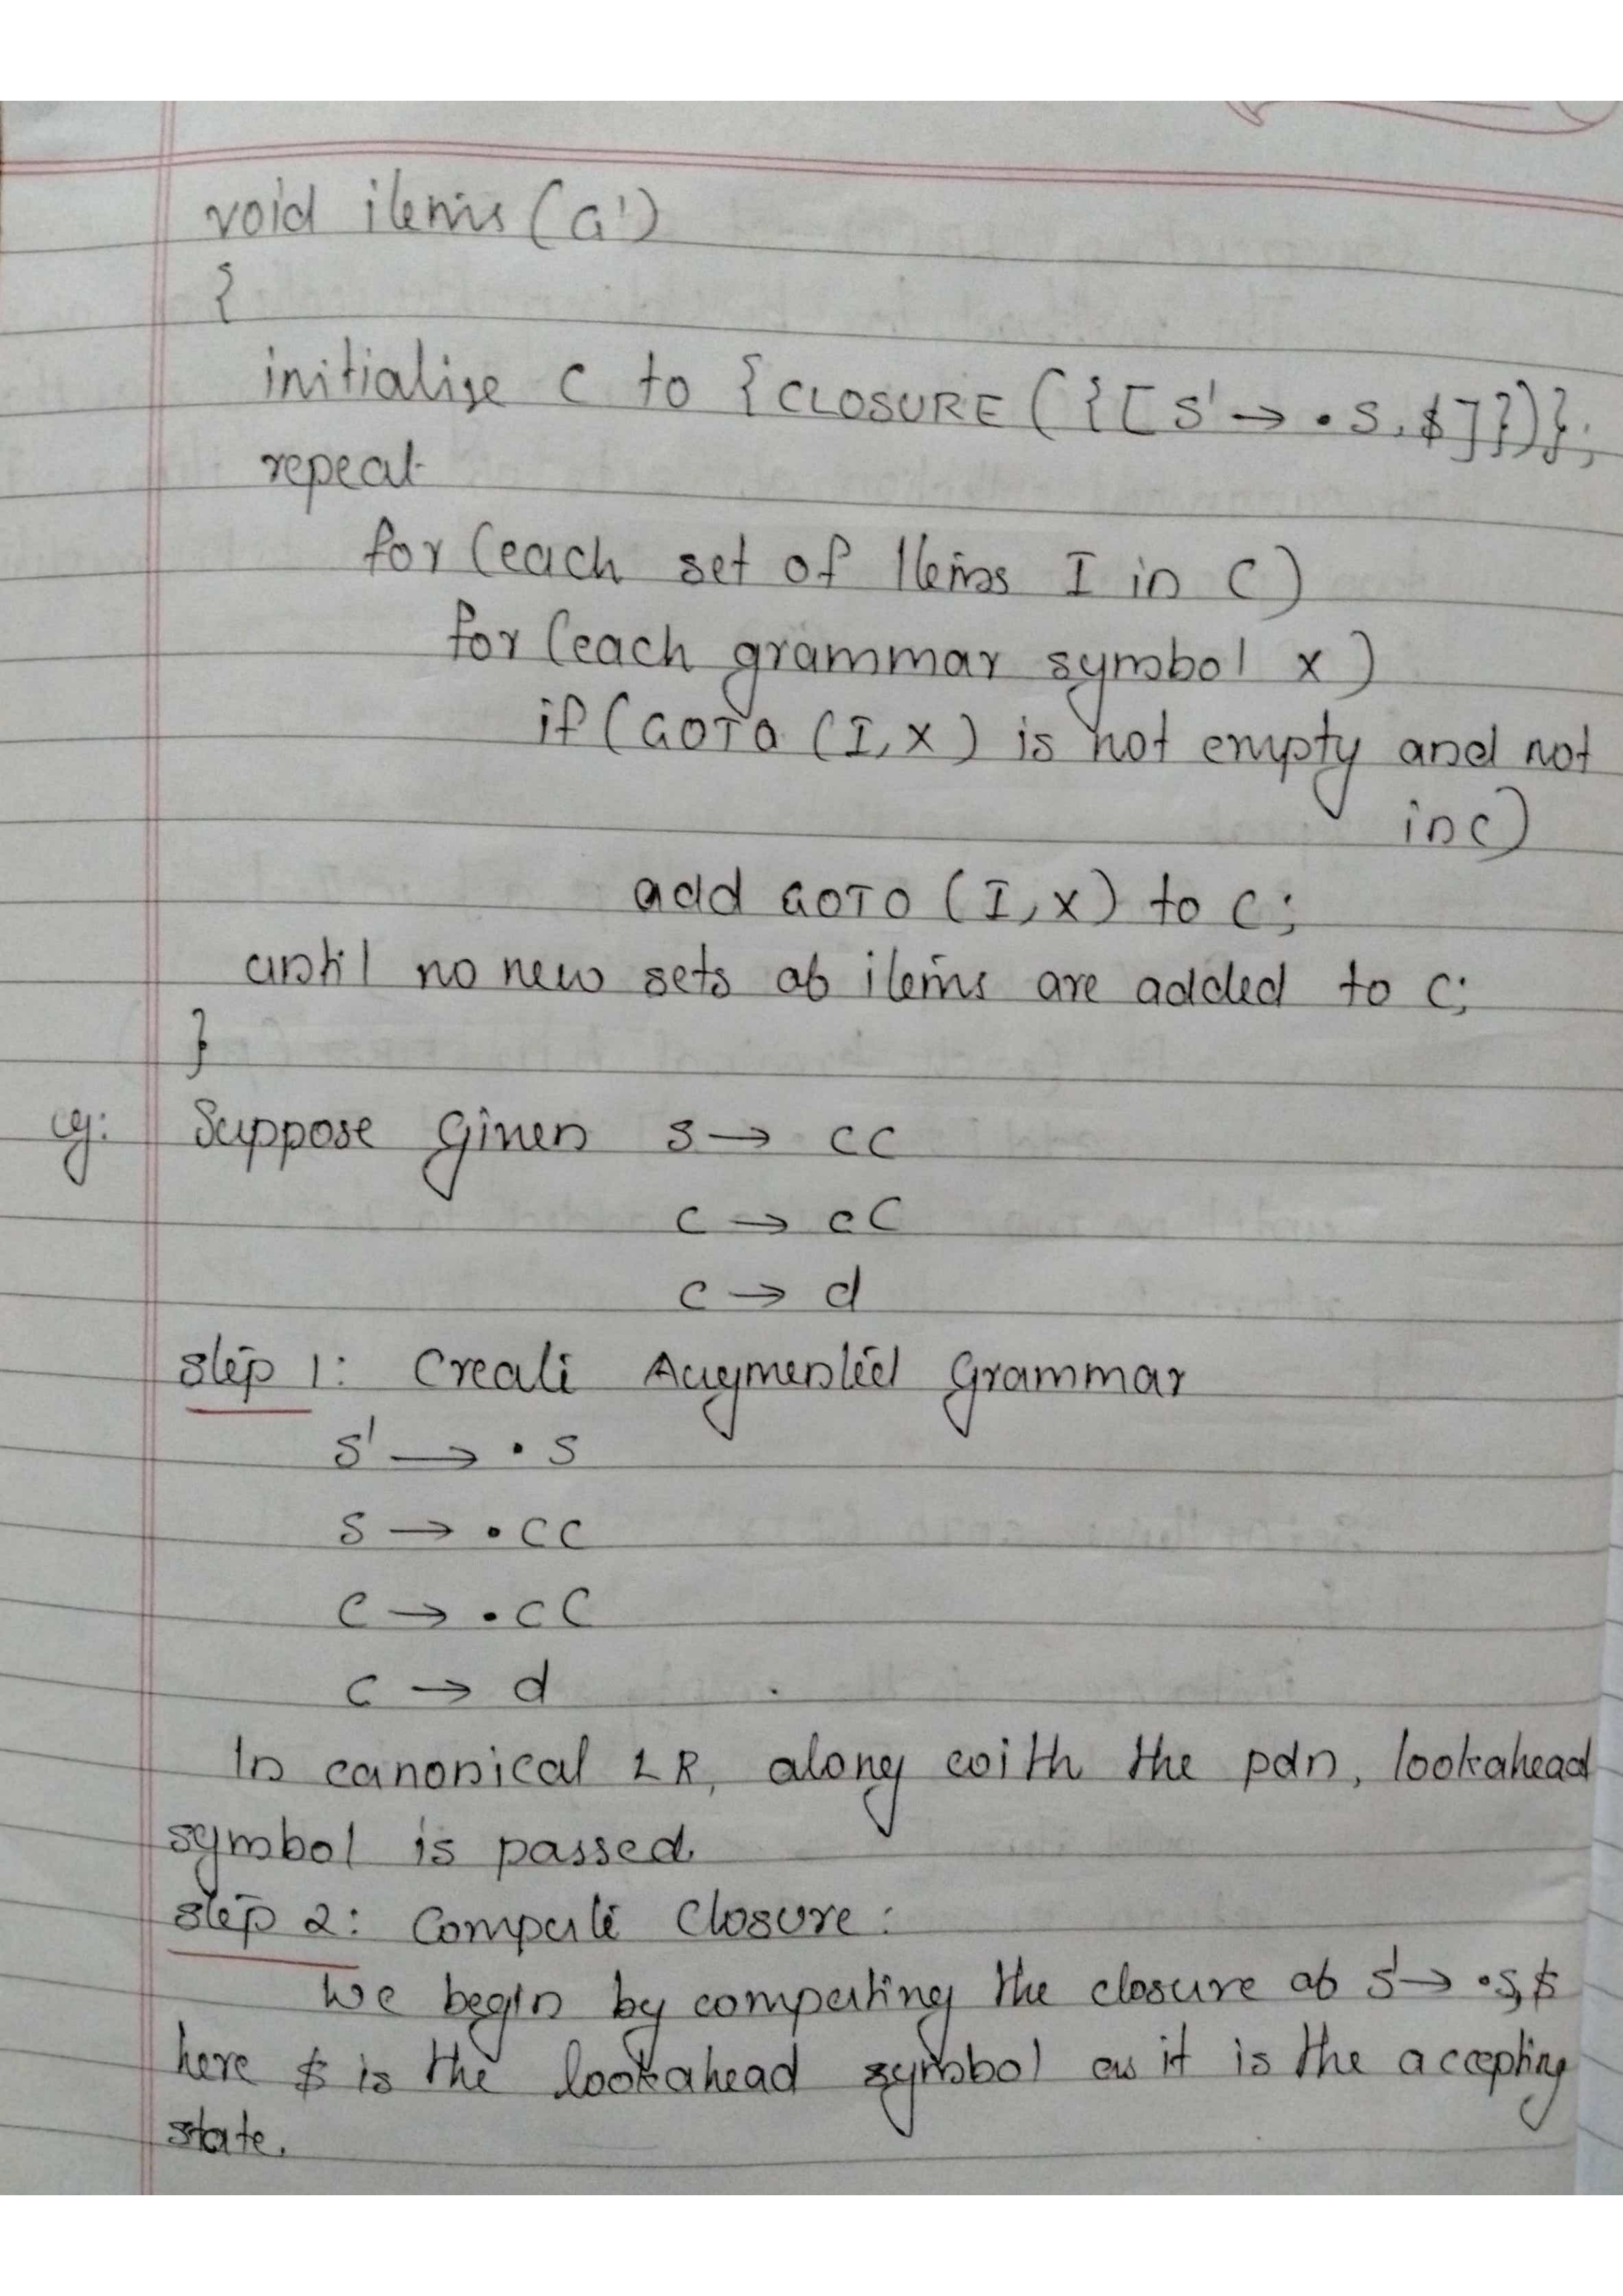 void items (G')
{
initialize C to {CLOSURE ({[S' → •S, $]})};
repeat
for (each set of Items I in C)
for (each grammar symbol X)
if (GOTO (I, X) is not empty and not
in C)
add GOTO (I, X) to C;
until no new sets of items are added to C;
}
eg: Suppose Given S → CC
C → cC
C → d
Step 1: Create Augmented Grammar
S' → •S
S → •CC
C → •cC
C → d
In canonical LR, along with the pdn, lookahead
symbol is passed.
Step 2: Compute Closure:
We begin by computing the closure of S' → •S,$
here $ is the lookahead symbol as it is the accepting
state.